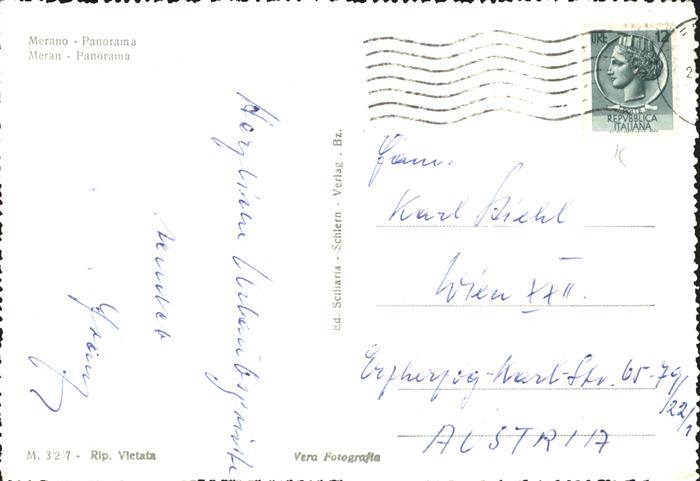 Merano - Panorama
Meran - Panorama
Herzliche Urlaubsgrüße
sendet
Franz
Ed. Sciliaria - Schlern - Verlag . Bz.
LIRE 12
POSTE
REPVBBLICA
ITALIANA
Fam.
Karl Diehl
Wien XXII.
Erzherzog-Karl-Str. 65-79/
22/1
AUSTRIA
M. 3207 - Rip. Vietata
Vera Fotografia